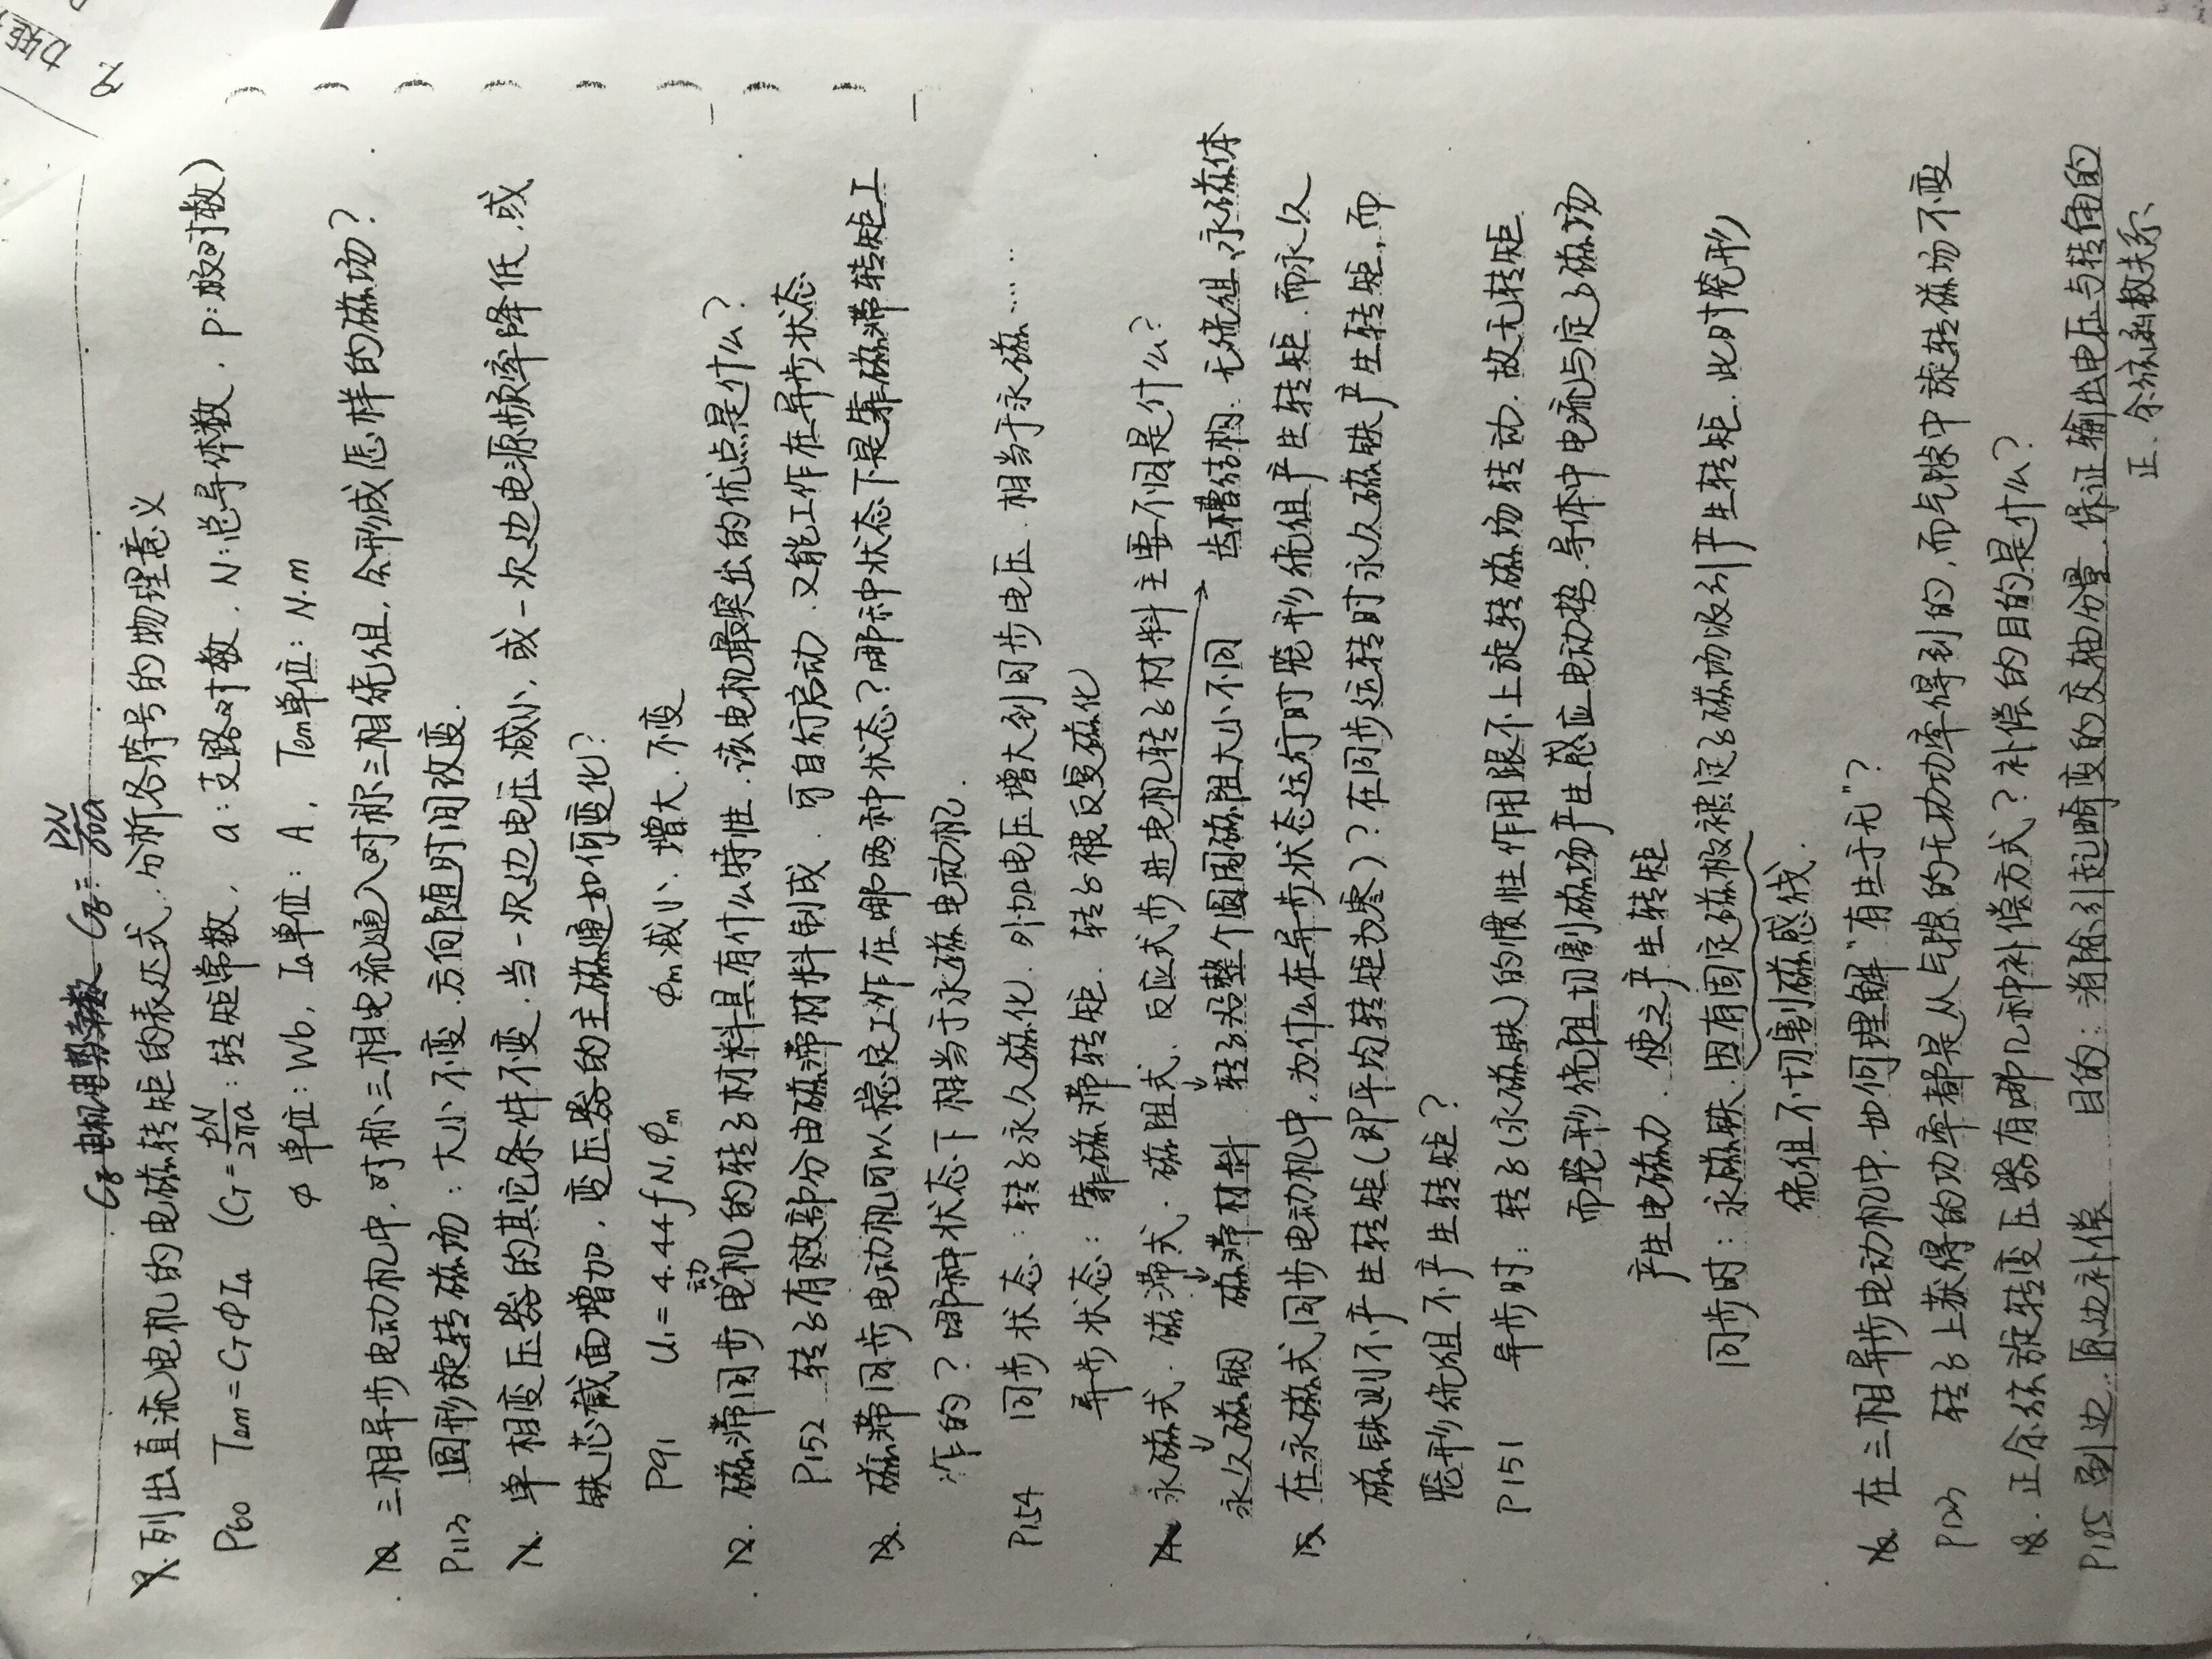 CE 电机电势常数 CE = PN/60a
9. 力矩
9. 列出直流电机的电磁转矩的表达式,分析各符号的物理意义
P60 Tem = CTΦIa (CT = PN/2πa : 转矩常数, a:支路对数, N:总导体数, P:极对数)
Φ 单位: Wb, Ia单位: A, Tem单位: N.m
10. 三相异步电动机中,对称三相电流通入对称三相绕组,会形成怎样的磁场?
P113 圆形旋转磁场:大小不变,方向随时间改变.
11. 单相变压器的其它条件不变,当一次边电压减小,或一次边电源频率降低,或
铁芯截面增加,变压器的主磁通如何变化?
P91 U₁ = 4.44fN₁Φm Φm减小、增大、不变
12. 磁滞同步电动机的转子材料具有什么特性,该电机最突出的优点是什么?
P152 转子有效部分由磁滞材料制成,可自行启动,又能工作在异步状态
13. 磁滞同步电动机可以稳定工作在哪两种状态?哪种状态下是靠磁滞转矩工
作的?哪种状态下相当于永磁电动机.
P154 同步状态:转子永久磁化,外加电压增大到同步电压,相当于永磁……
异步状态:靠磁滞转矩,转子被反复磁化
14. 永磁式、磁滞式、磁阻式、反应式步进电机转子材料主要不同是什么?
永久磁钢 磁滞材料 转子沿整个圆周磁阻大小不同 齿槽结构、无绕组、永磁体
15. 在永磁式同步电动机中,为什么在异步状态运行时笼形绕组产生转矩,而永久
磁铁则不产生转矩(即平均转矩为零)?在同步运转时永久磁铁产生转矩,而
笼形绕组不产生转矩?
P151 异步时:转子(永磁铁)的惯性作用跟不上旋转磁场转动,故无转矩
而笼形绕阻切割磁场产生感应电动势,导体中电流与定子磁场
产生电磁力,使之产生转矩
同步时:永磁铁,因有固定磁极被定子磁场吸引产生转矩,此时笼形
绕组不切割磁感线.
16. 在三相异步电动机中,如何理解"有生于无"?
P123 转子上获得的功率都是从气隙的无功功率得到的,而气隙中旋转磁场不变
18. 正余弦旋转变压器有哪几种补偿方式?补偿的目的是什么?
P185 副边、原边补偿 目的:消除引起畸变的交轴分量,保证输出电压与转角的
正、余弦函数关系